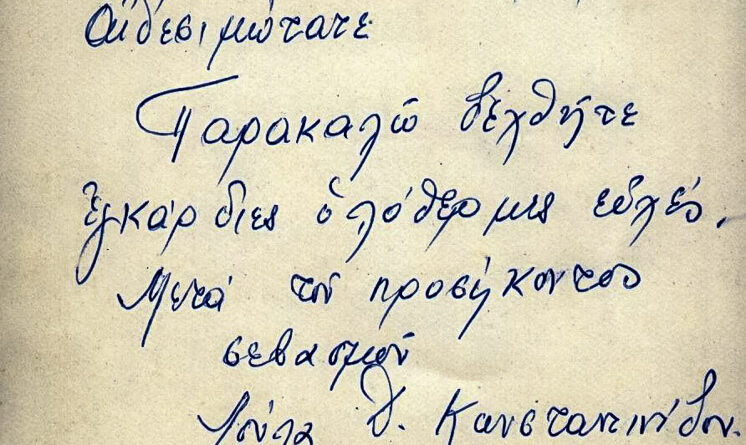 Αἰδεσιμώτατε
Παρακαλῶ δεχθῆτε
ἐγκάρδιες ὁλόθερμες εὐχές.
Μετά τοῦ προσήκοντος
σεβασμοῦ
Λούλα Θ. Κωνσταντινίδου.